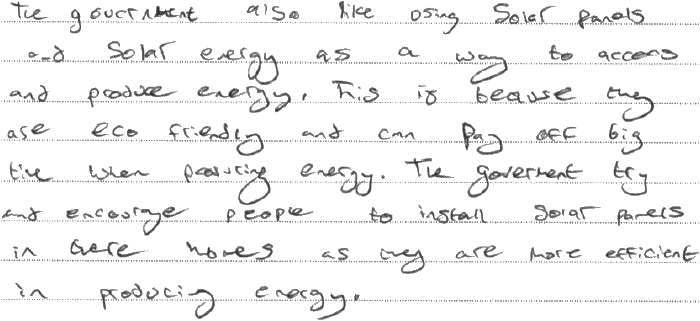 The government also like using Solar panels
and Solar energy as a way to access
and produce energy. This is because they
are eco friendly and can Pay off big
time when producing energy. The goverment try
and encourage people to install Solar panels
in there homes as they are more efficient
in producing energy.